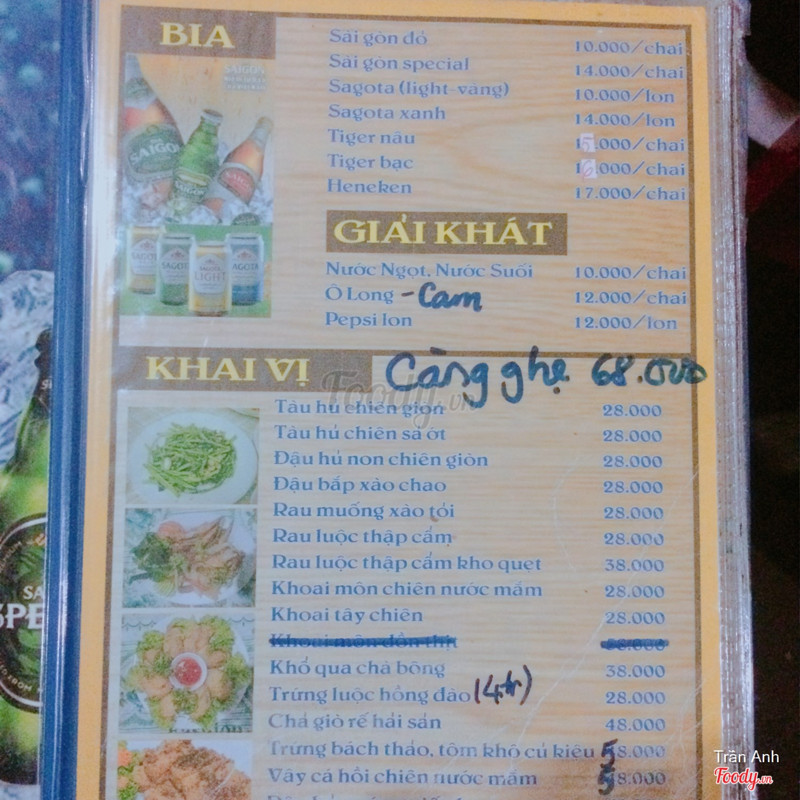 BIA
Sài gòn đỏ 10.000/chai
Sài gòn special 14.000/chai
Sagota (light-vàng) 10.000/lon
Sagota xanh 14.000/lon
Tiger nâu 15.000/chai
Tiger bạc 16.000/chai
Heneken 17.000/chai
SAIGON
SAIGON
SAGOTA
SAGOTA
LIGHT
SAGOTA
GIẢI KHÁT
Nước Ngọt, Nước Suối 10.000/chai
Ô Long - Cam 12.000/chai
Pepsi lon 12.000/lon
KHAI VỊ
Càng ghẹ 68.000
Foody.vn
Tàu hủ chiên giòn 28.000
Tàu hủ chiên sả ớt 28.000
Đậu hủ non chiên giòn 28.000
Đậu bắp xào chao 28.000
Rau muống xào tỏi 28.000
Rau luộc thập cẩm 28.000
Rau luộc thập cẩm kho quẹt 38.000
Khoai môn chiên nước mắm 28.000
Khoai tây chiên 28.000
Khoai môn dồn thịt
Khổ qua chà bông 38.000
Trứng luộc hồng đào (4tr) 28.000
Chả giò rế hải sản 48.000
Trứng bách thảo, tôm khô củ kiệu 58.000
Vây cá hồi chiên nước mắm 58.000
SPE
Trần Anh
Foody.vn